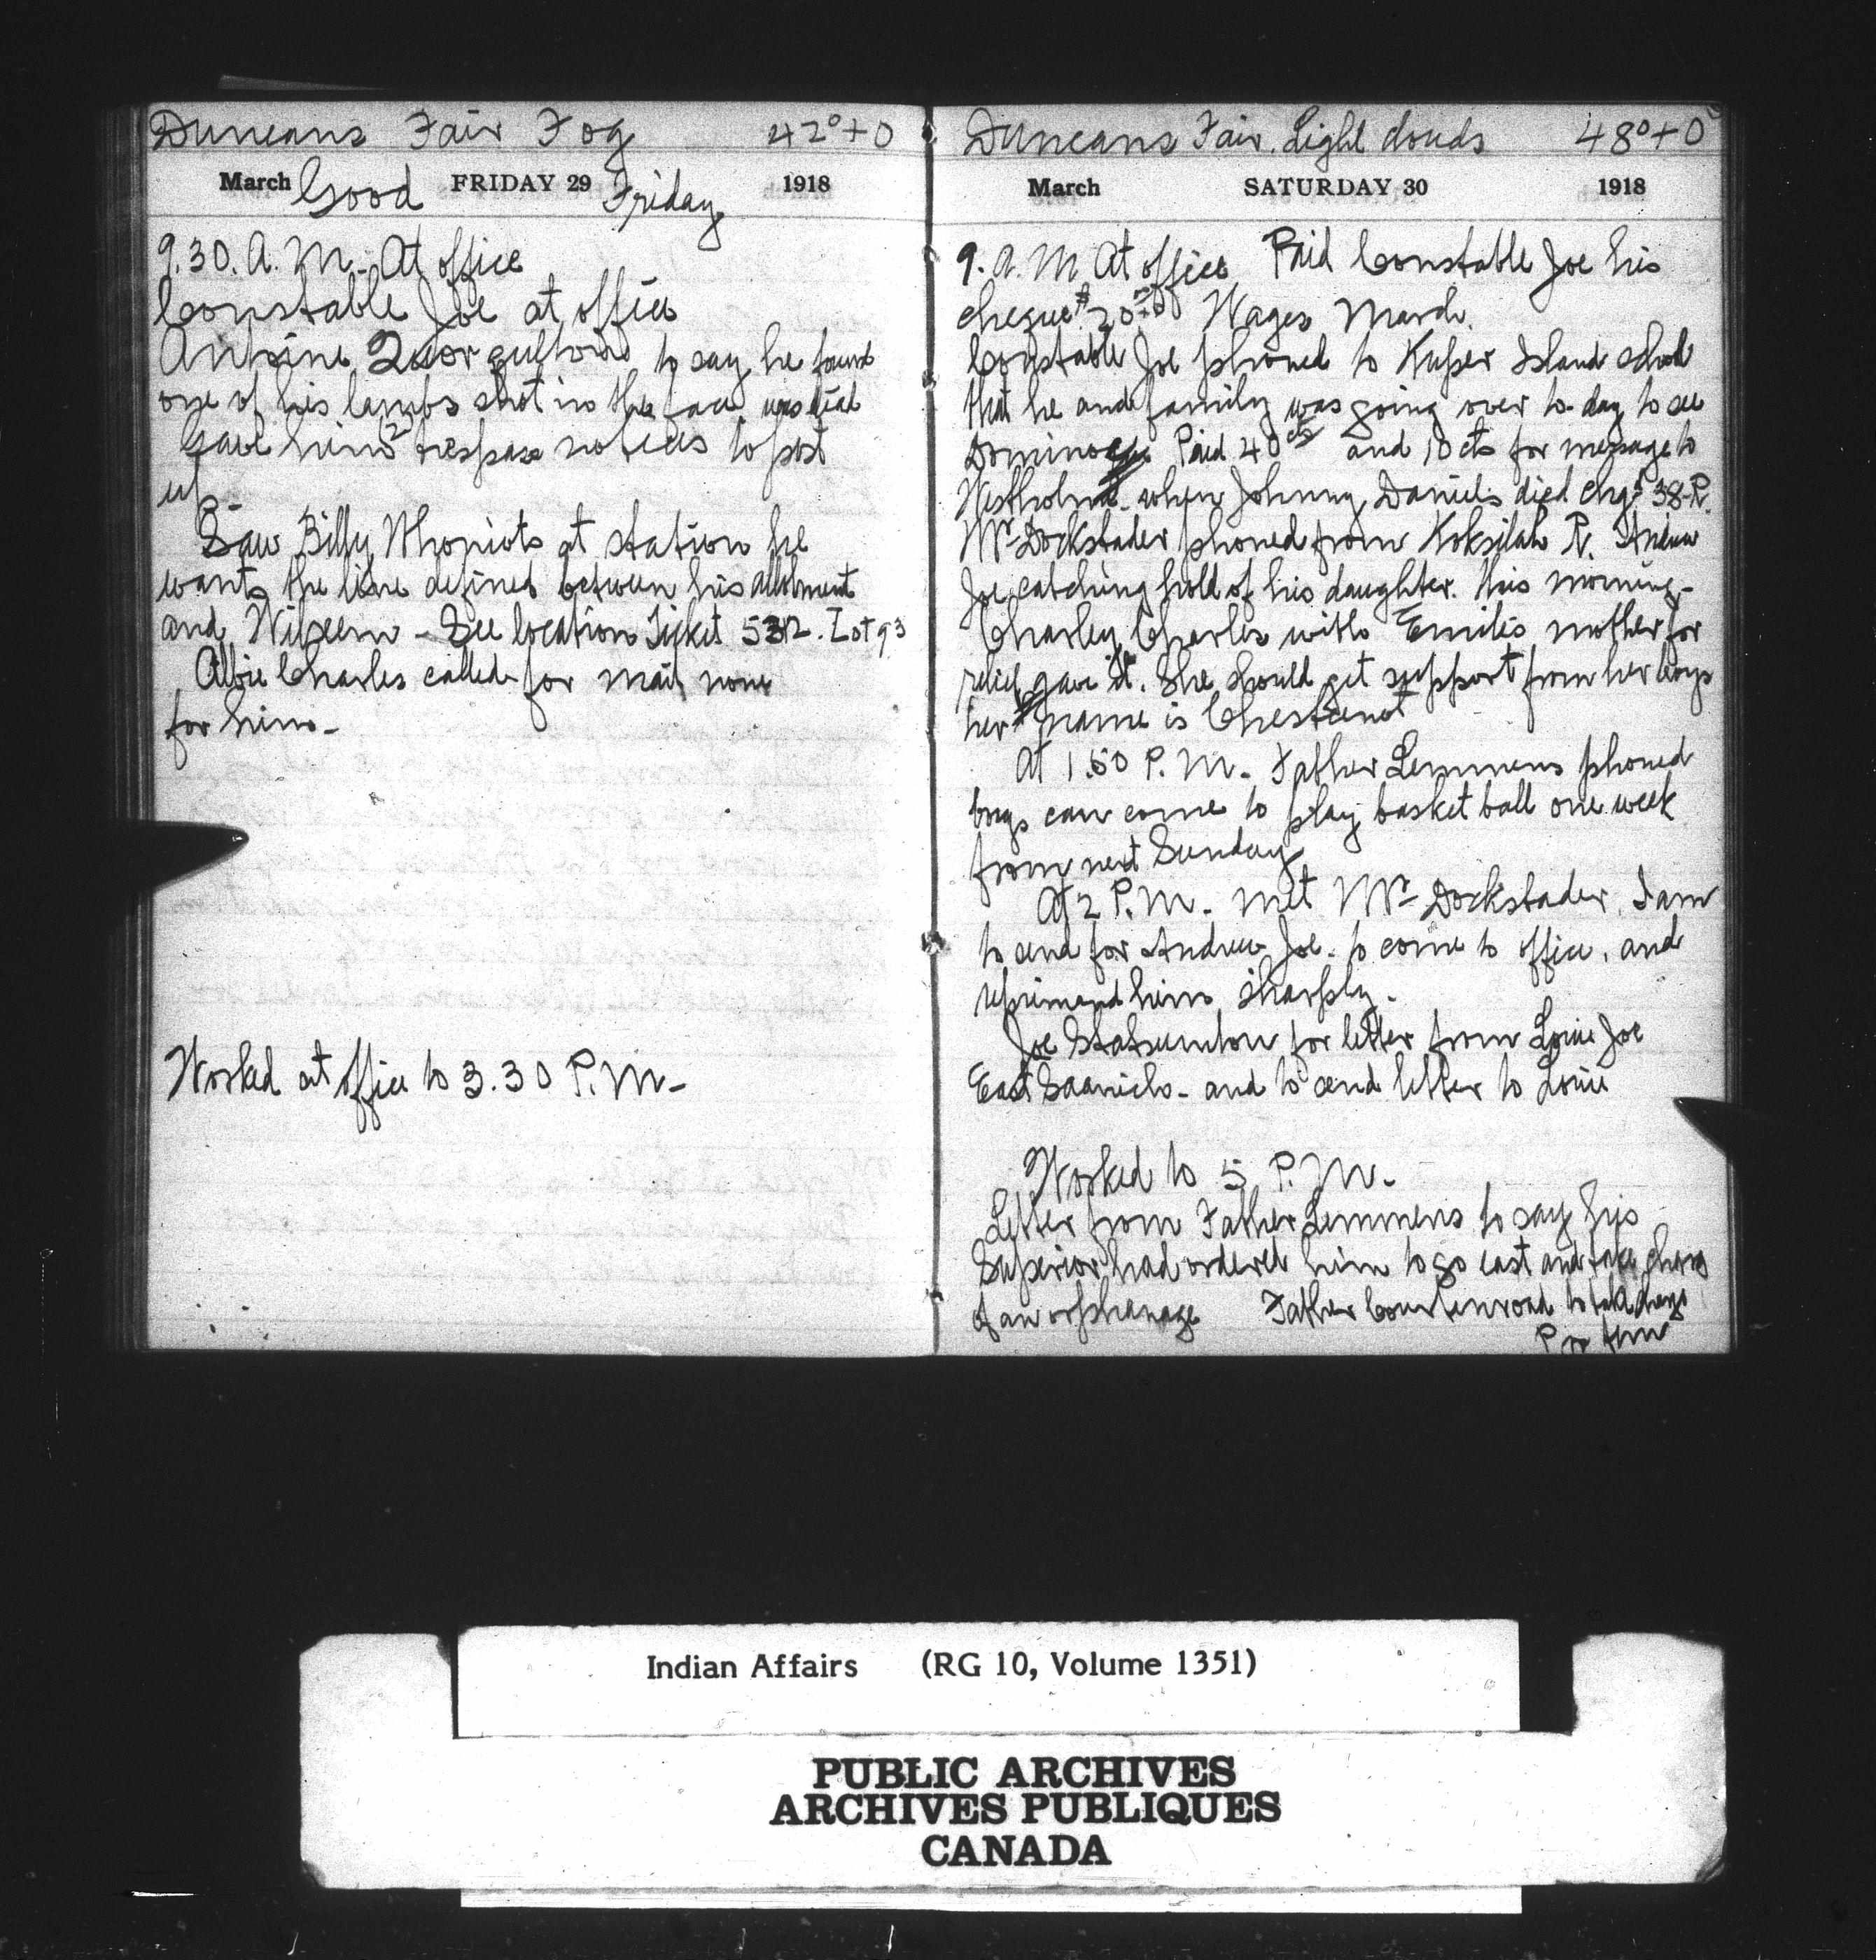 Duncans Fair Fog 42°+0
March FRIDAY 29 1918
Good Friday
9.30. A. M. At office
Constable Joe at office
Antoine to say he found
one of his lambs shot in the face was dead
Gave him (2) trespass notices to post
up
Saw Billy Whoniots at station he
wants the line defined between his allotment
and - See location Ticket 532. Lot 93
Albie Charles called for mail none
for him -
Worked at office to 3.30 P.M -
Duncans Fair. Light clouds 48°+0
March SATURDAY 30 1918
9. A. M. At office Paid Constable Joe his
cheque $20.00 Wages March.
Constable Joe phoned to Kuper Island school
that he and family was going over to day to see
Paid 40 cts and 10 cts for message to
Westholme when Johnny Daniels died chgd 38-R.
Mr Dockstader phoned from Koksilah R. Andrew
Joe catching hold of his daughter. this morning -
Charley Charles with Emilis mother for
relief gave it. She should get support from her boys
her name is
At 1.50 P. M. Father Lemmens phoned
boys can come to play basket ball one week
from next Sunday
At 2 P.M. met Mr Dockstader. I am
to send for Andrew Joe to come to office. and
reprimand him sharply.
Joe for letter from Louie Joe
East Saanich - and to send letter to Louie
Worked to 5 P.M.
Letter from Father Lemmens to say his
Superior had ordered him to go east and take charge
of an orphanage Father to take charge
Pro tem
Indian Affairs (RG 10, Volume 1351)
PUBLIC ARCHIVES
ARCHIVES PUBLIQUES
CANADA